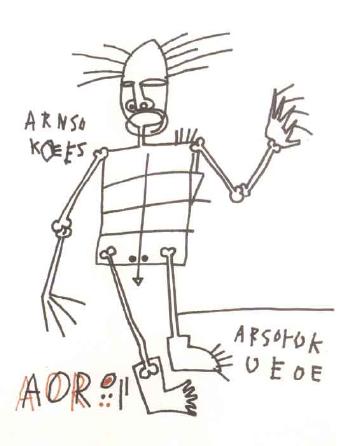 ARNSO
KOEES
ABSOTUK
UEOE
AOR